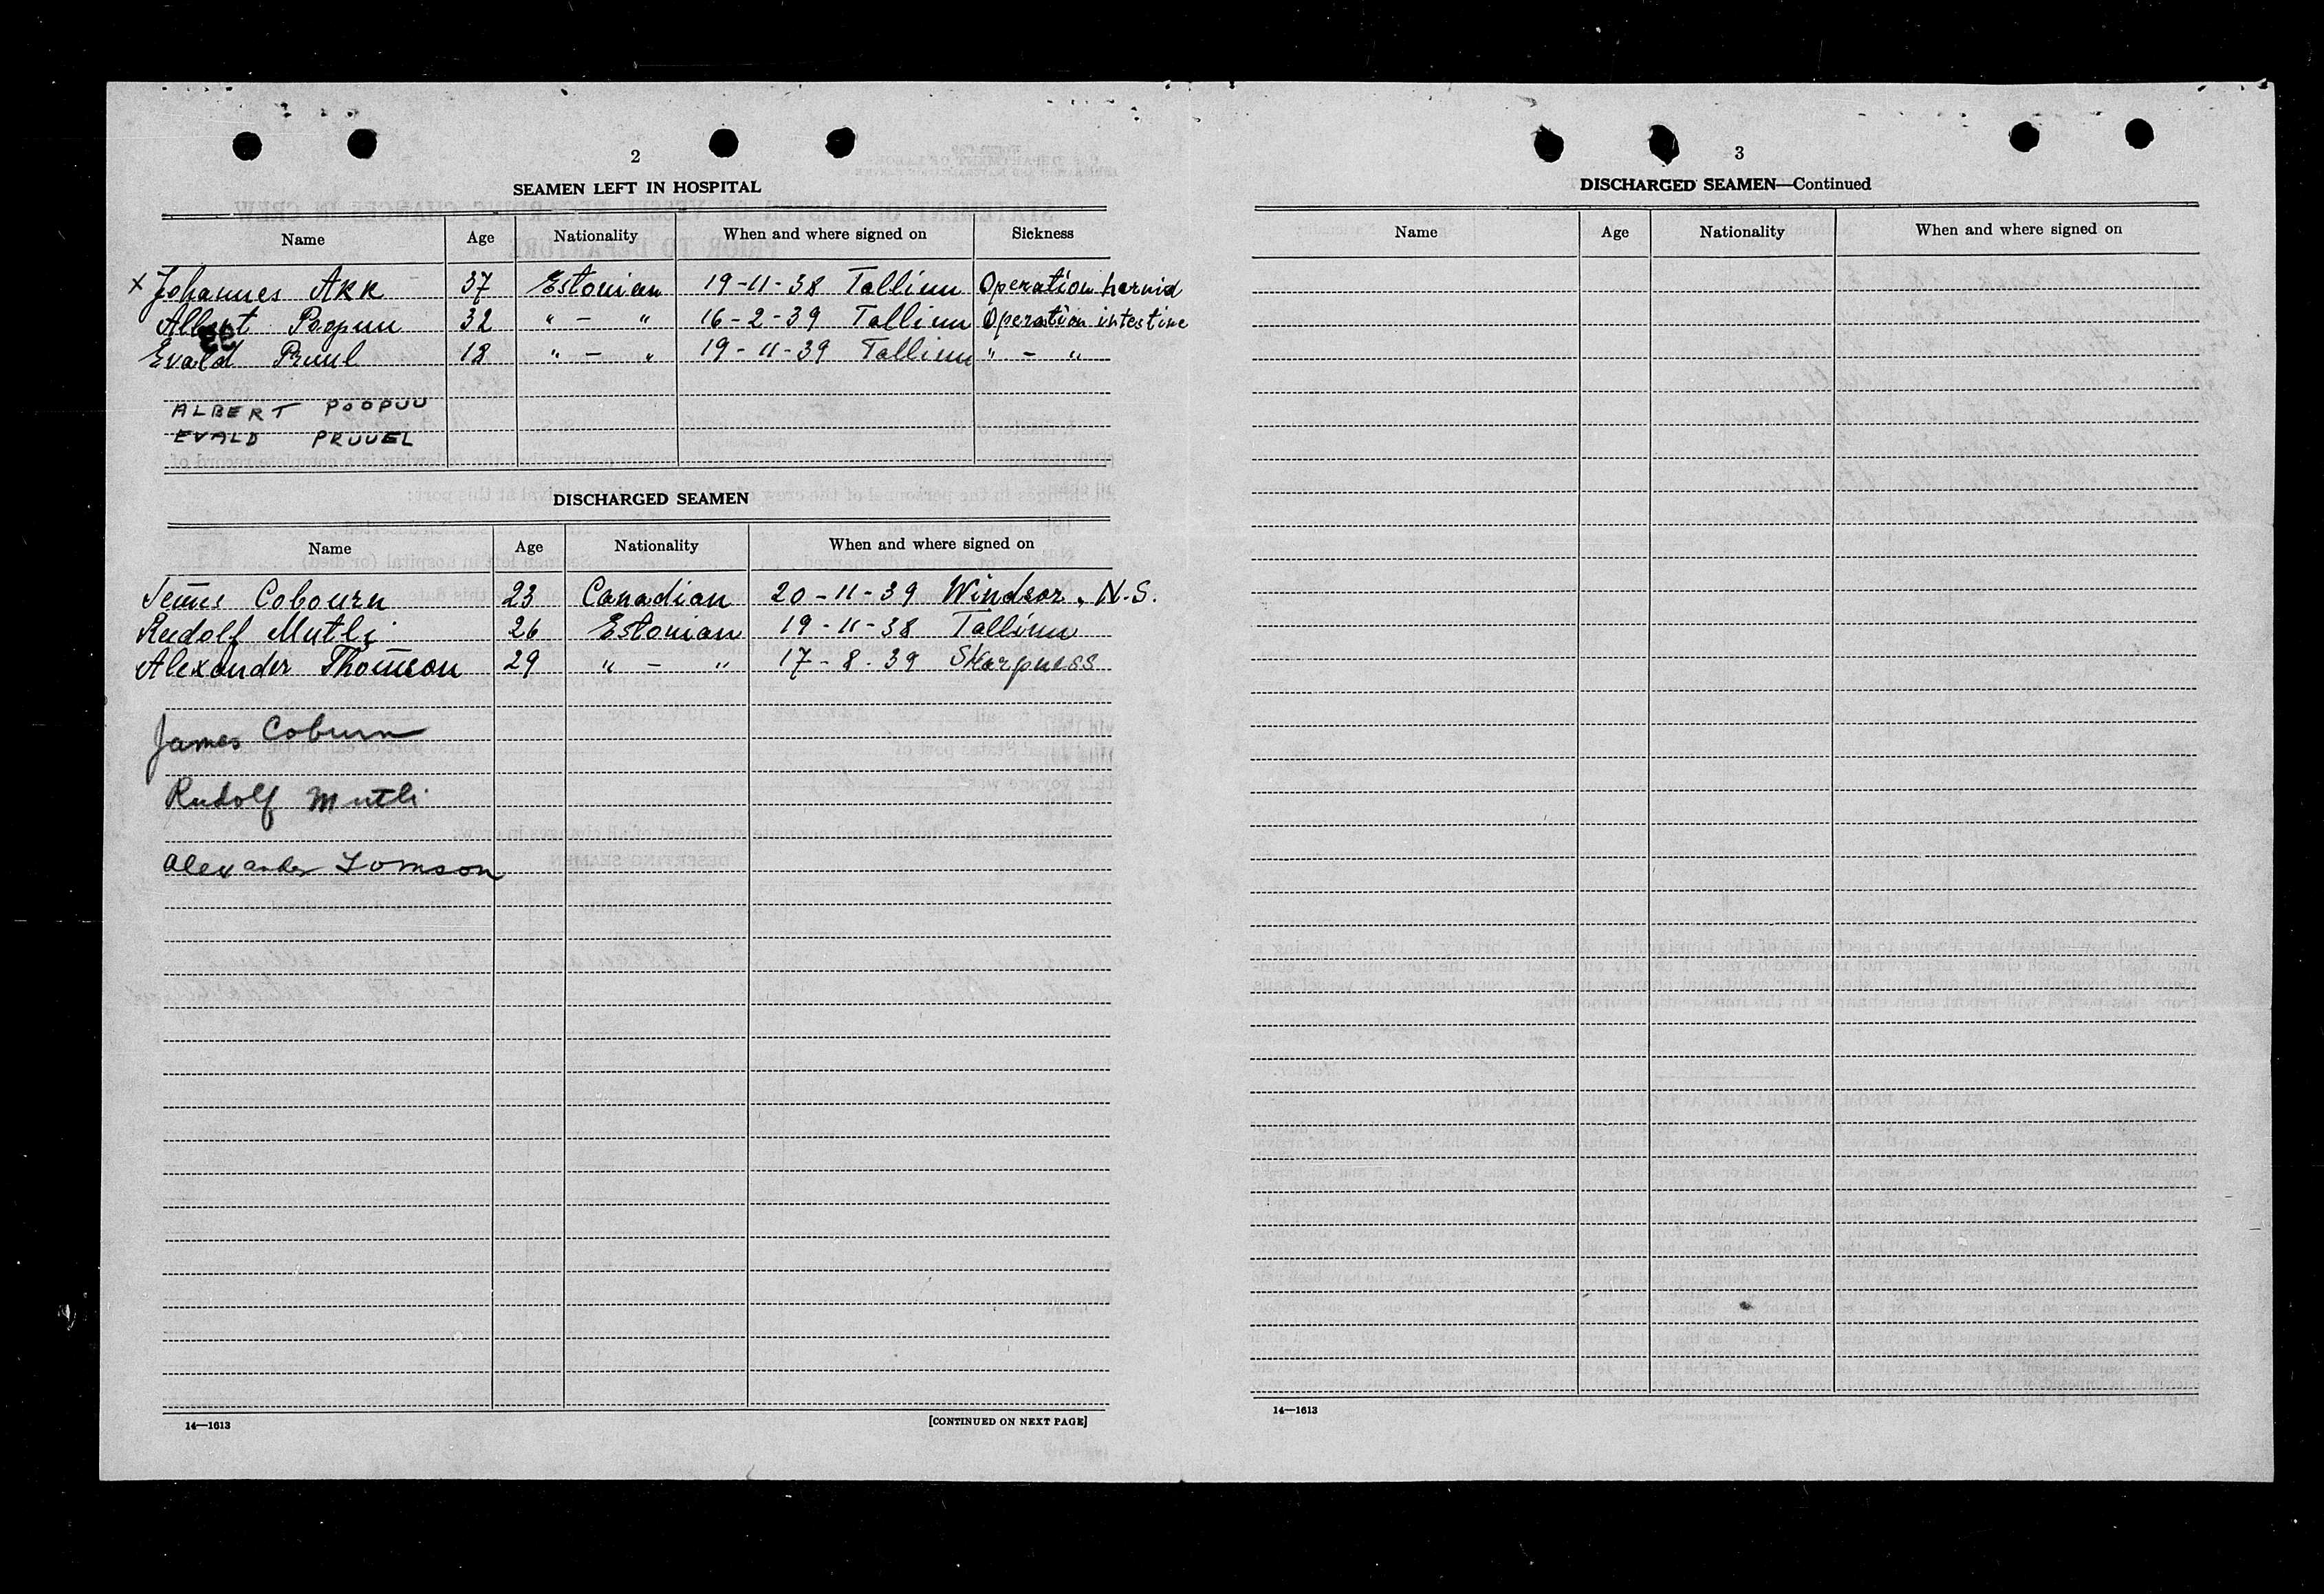 2
SEAMEN LEFT IN HOSPITAL
Name Age Nationality When and where signed on Sickness
x Johannes Akk 37 Estonian 19-11-38 Tallinn Operation hernid
Albert Poopuu 32 " - " 16-2-39 Tallinn Operation intestine
Evald Pruul 18 " - " 19-11-39 Tallinn " - "
ALBERT POOPUU
EVALD PRUUEL
DISCHARGED SEAMEN
Name Age Nationality When and where signed on
Jemes Cobourn 23 Canadian 20-11-39 Windsor, N.S.
Rudolf Mutli 26 Estonian 19-11-38 Tallinn
Alexander Thomson 29 " - " 17-8-39 Skarpness
James Coburn
Rudolf Mutli
Alexander Tomson
14—1613 [CONTINUED ON NEXT PAGE]
3
DISCHARGED SEAMEN—Continued
Name Age Nationality When and where signed on
14—1613